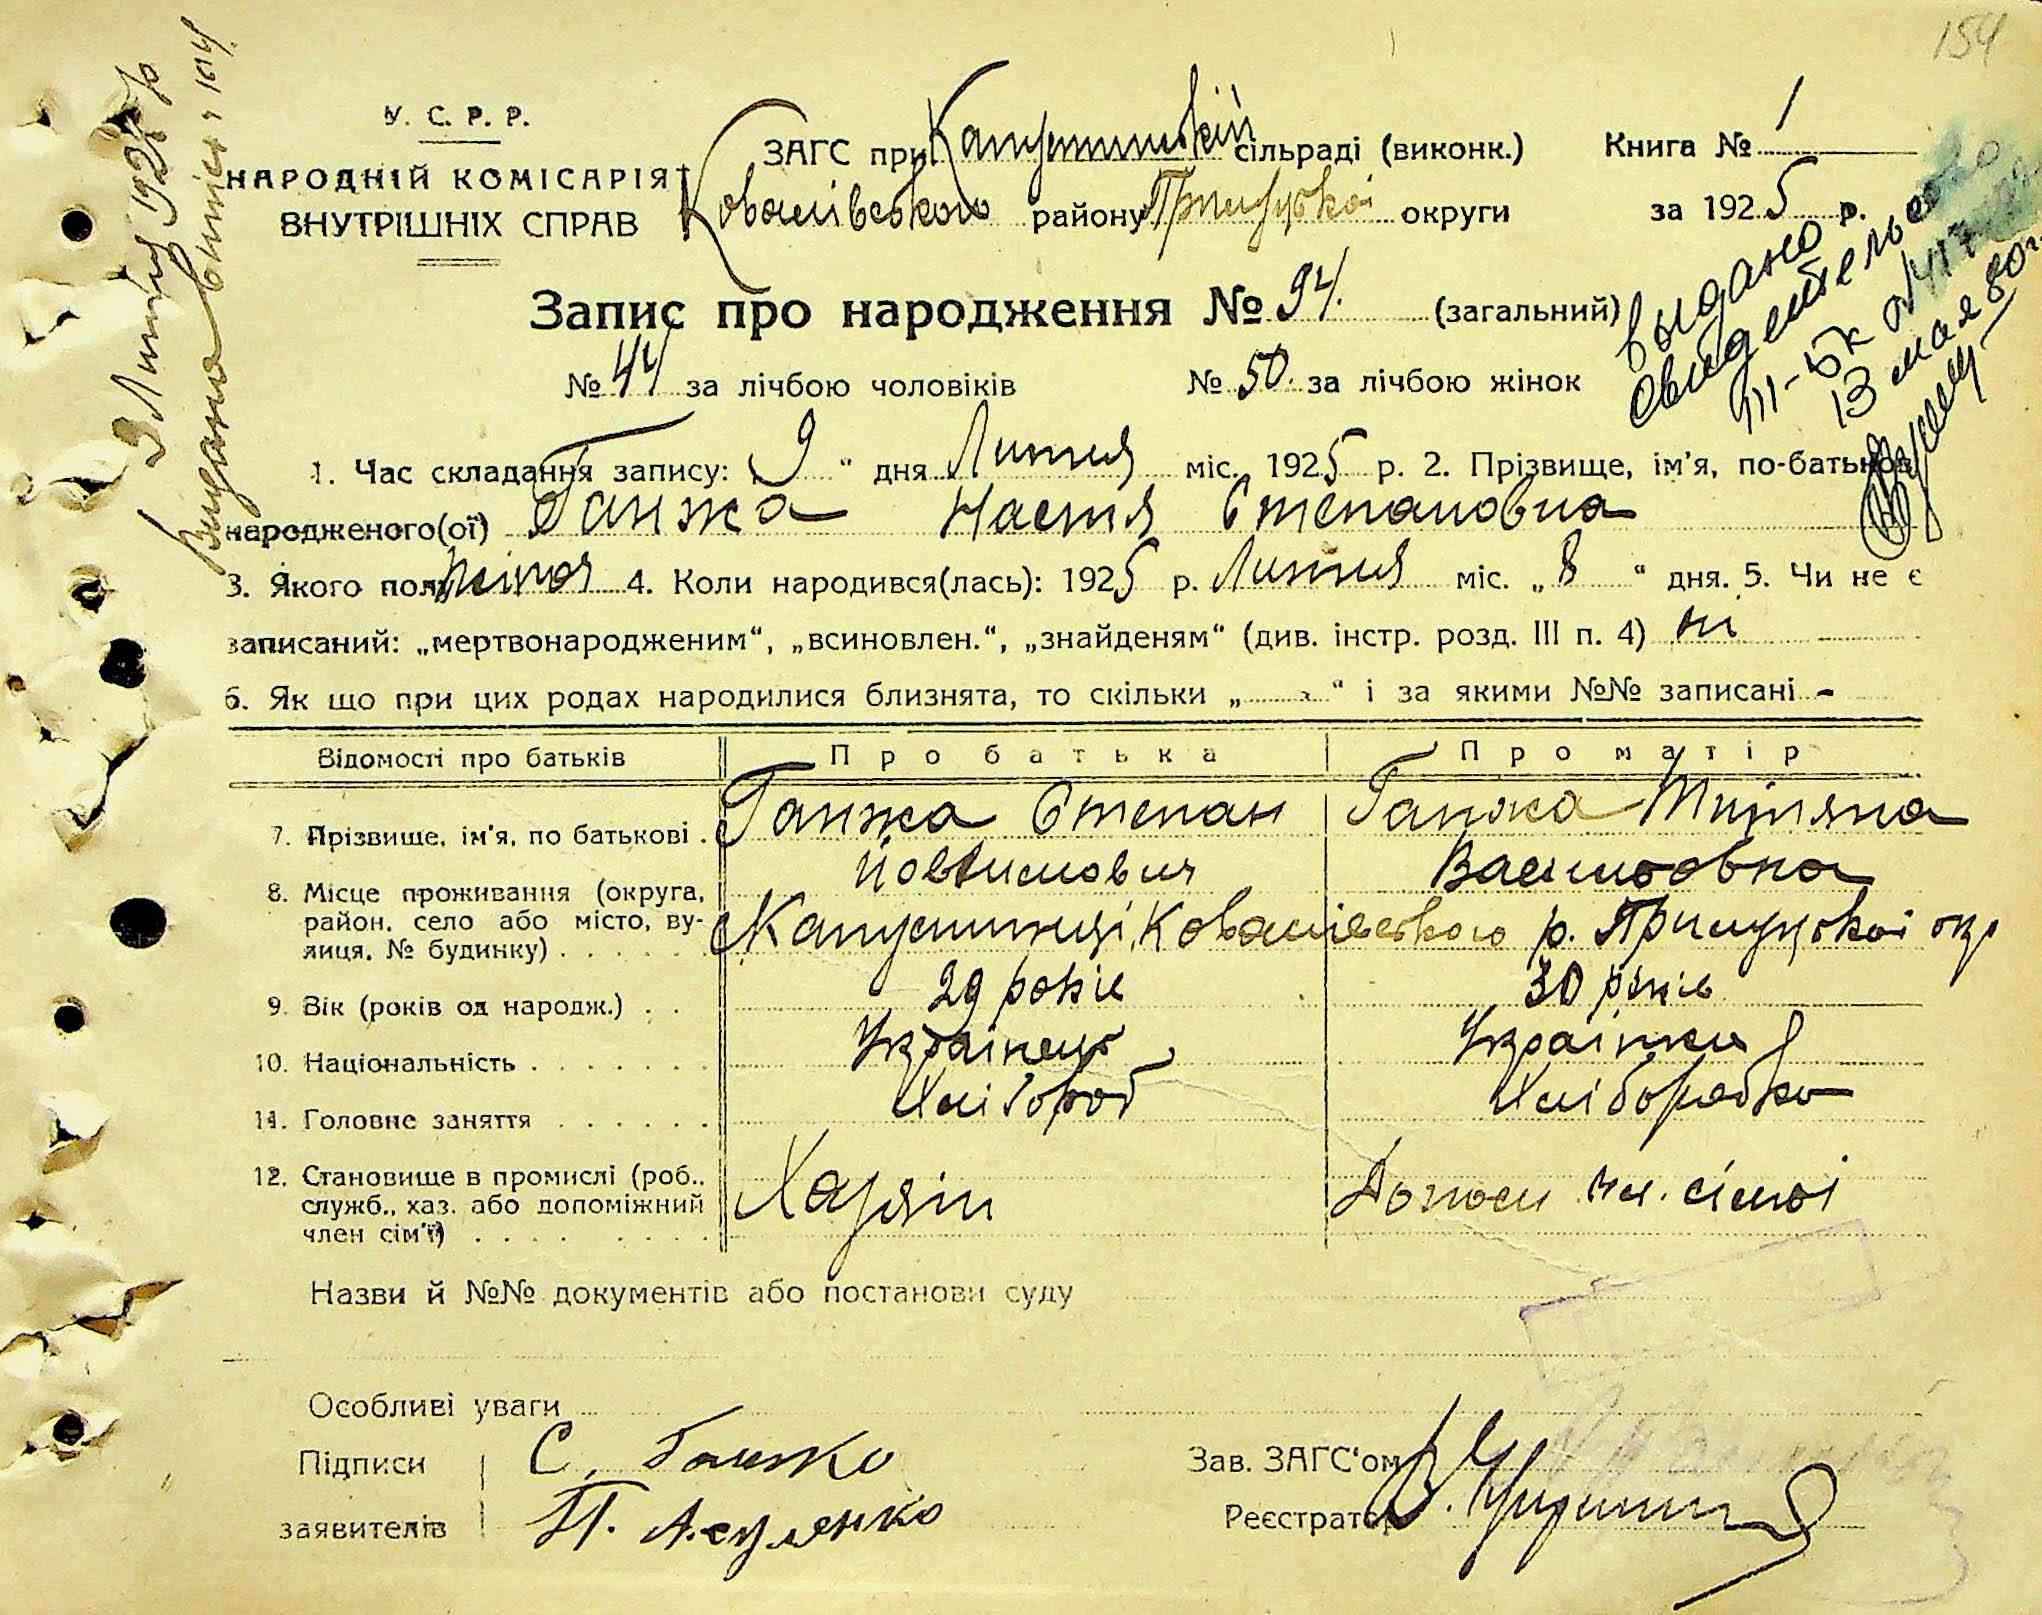 154
У. С. Р. Р.
НАРОДНІЙ КОМІСАРІЯТ
ВНУТРІШНІХ СПРАВ
ЗАГС при Капустинській сільраді (виконк.)
Ковалівського району Прилуцької округи
Книга № 1
за 1925 р.
Запис про народження № 94. (загальний)
№ 44 за лічбою чоловіків № 50. за лічбою жінок
Выдано
свидетельство
III-БК
13 мая
Видано витяг
1. Час складання запису: „9“ дня Липня міс. 1925 р. 2. Прізвище, ім'я, по-батькові
народженого(ої) Ганжа Настя Степановна
3. Якого полу жіноч 4. Коли народився(лась): 1925 р. Липня міс. „8“ дня. 5. Чи не є
записаний: „мертвонародженим“, „всиновлен.“, „знайденям“ (див. інстр. розд. III п. 4) ні
6. Як що при цих родах народилися близнята, то скільки „ - “ і за якими №№ записані -
Відомості про батьків Про батька Про матір
7. Прізвище, ім'я, по батькові . Ганжа Степан Ганжа Тит'яна
Василовна
8. Місце проживання (округа, район, село або місто, вулиця, № будинку) . . . . . . Капустинці, Ковалівського р. Прилуцької окр
9. Вік (років од народж.) . . 29 років 30 років
10. Національність . . . . . . . Українець Українка
11. Головне заняття . . . . . . Хлібороб Хліборобка
12. Становище в промислі (роб., служб., хаз. або допоміжний член сім'ї) . . . . . . . . Хазяін Допом чл. сімʼі
Назви й №№ документів або постанови суду
Особливі уваги
Підписи С. Ганжа Зав. ЗАГС'ом
заявителів П. Реєстратор